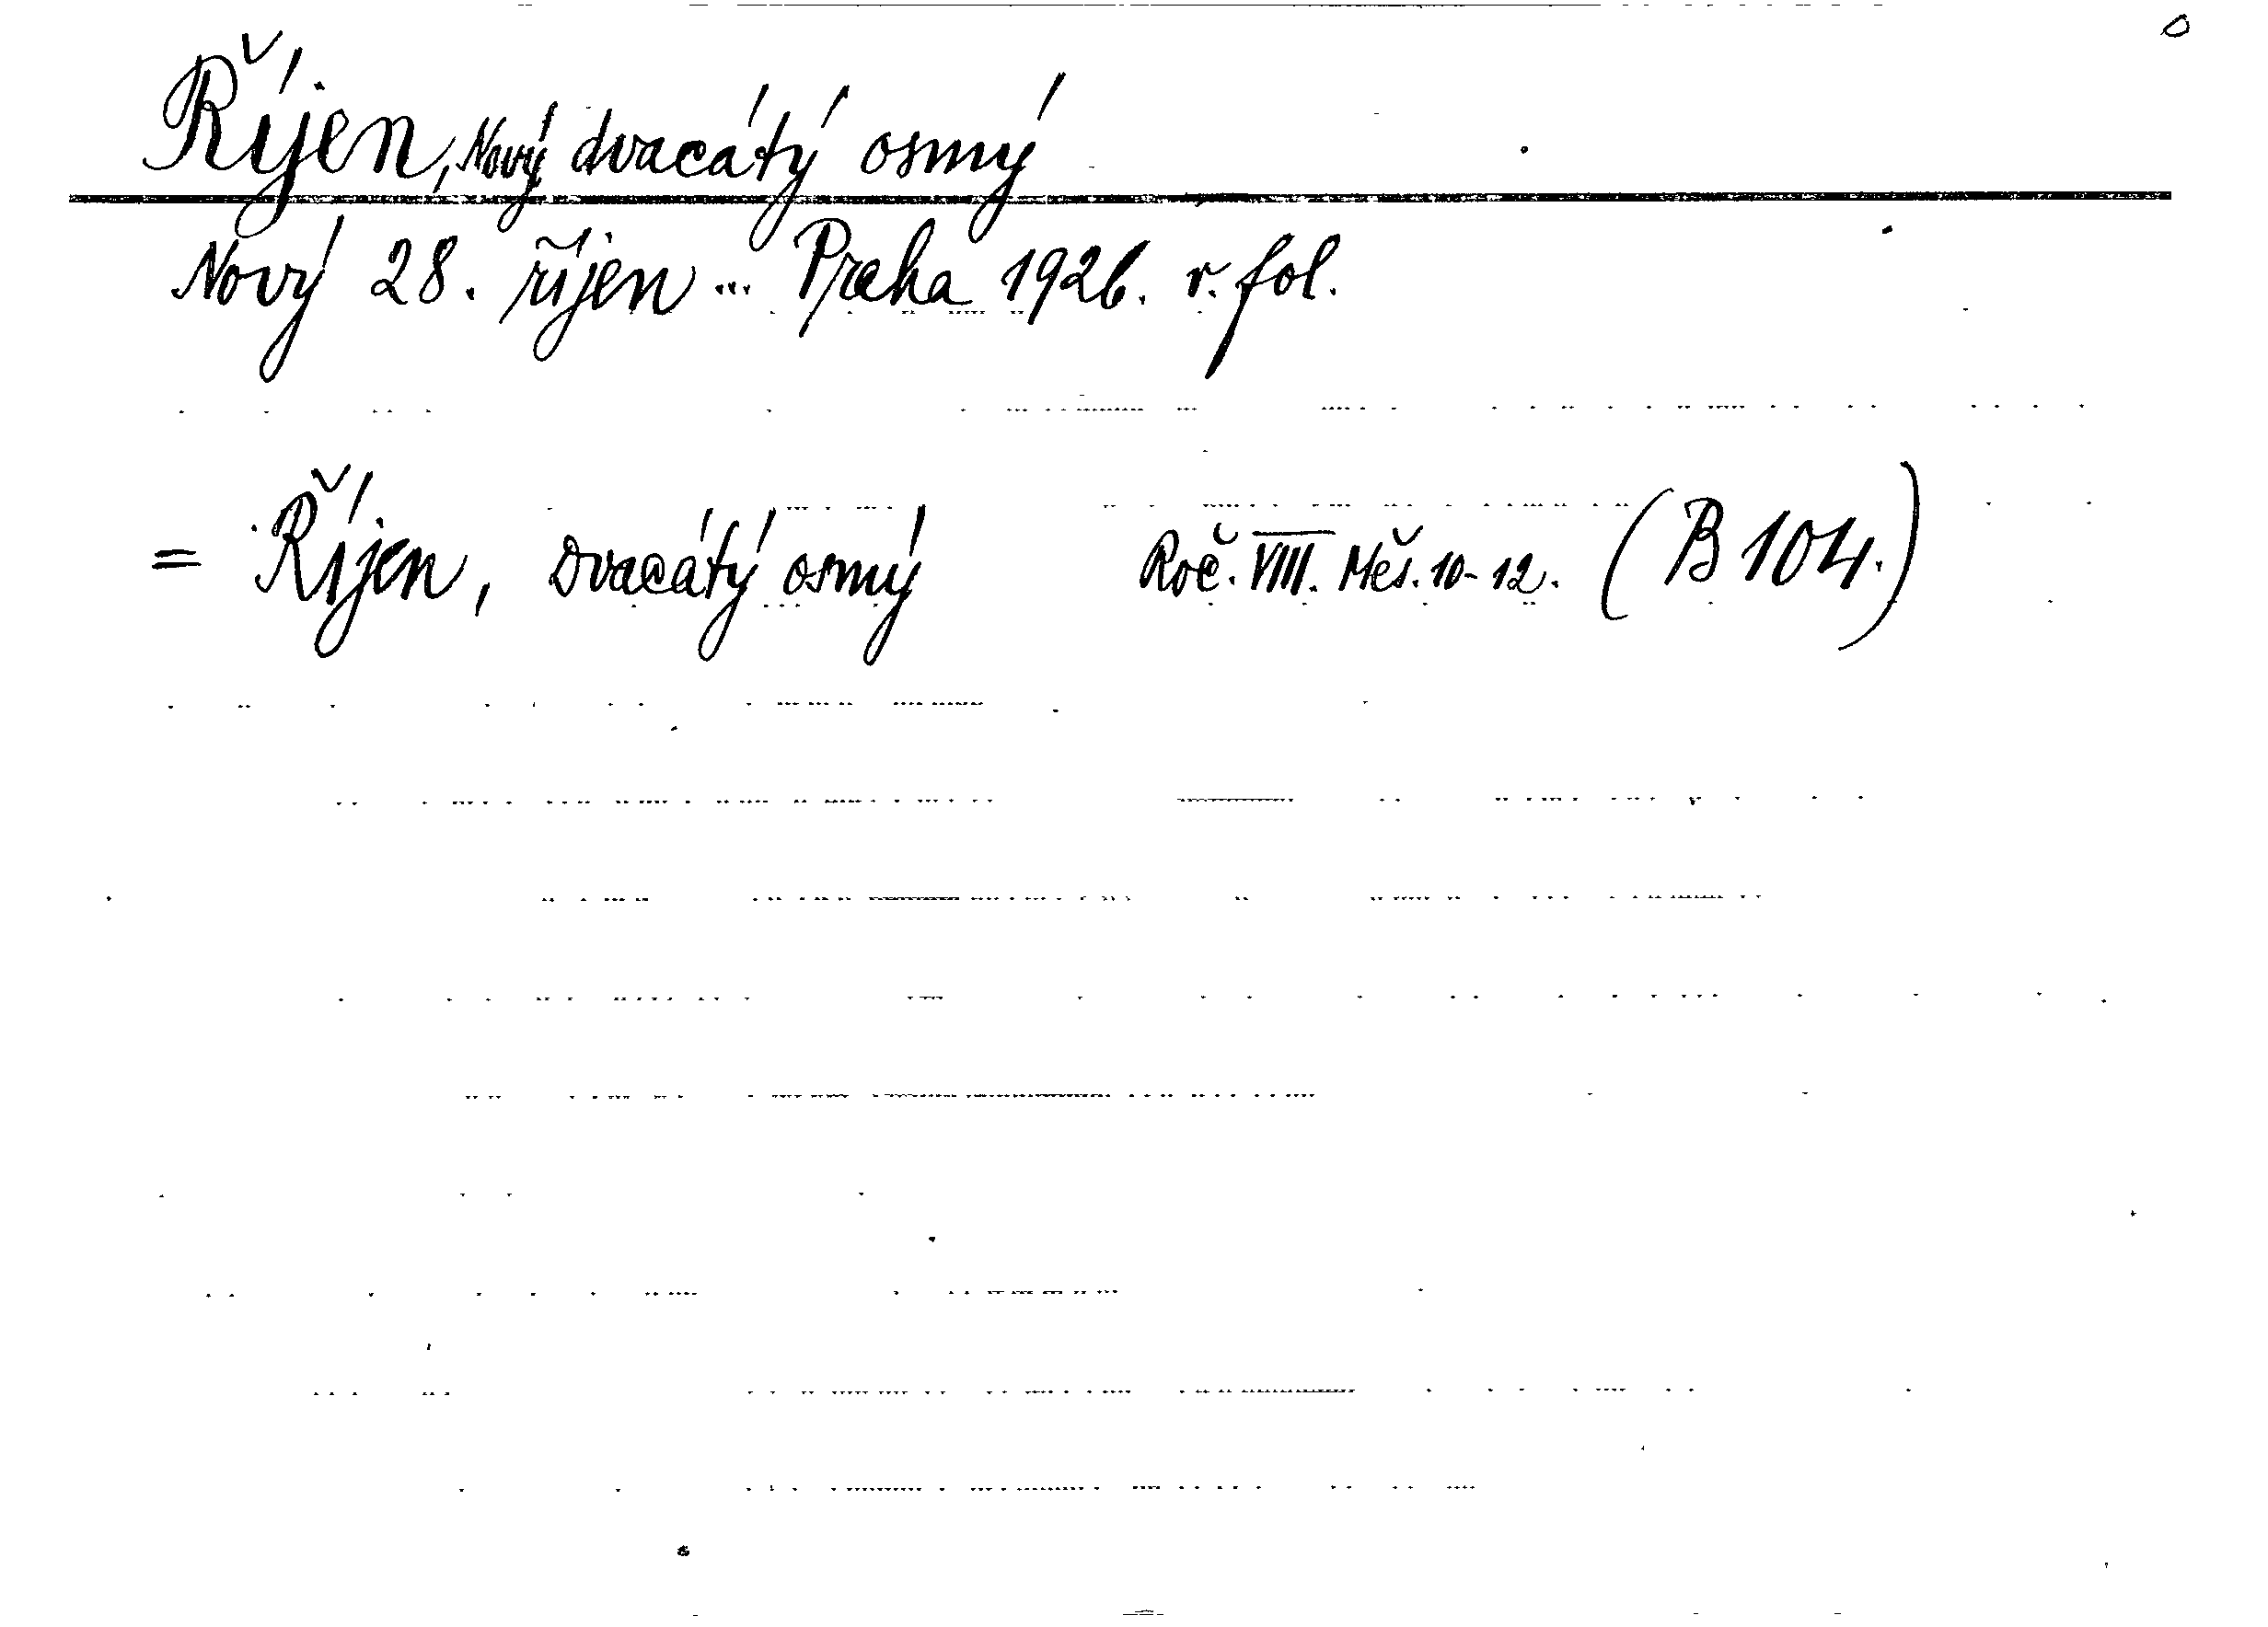 Říjen, Nový dvacátý osmý
Nový 28. říjen ... Praha 1926. v. fol.
= Říjen, Dvacátý osmý Roč. VIII. Měs. 10-12. (B 104.)